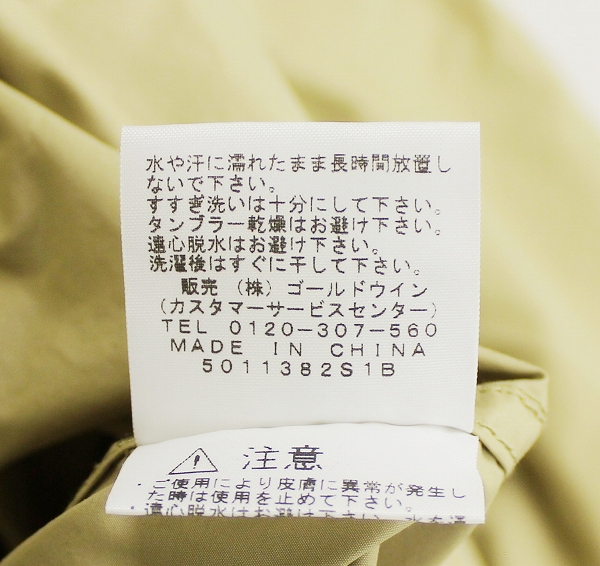 水や汗に濡れたまま長時間放置し
ないで下さい。
すすぎ洗いは十分にして下さい。
タンブラー乾燥はお避け下さい。
遠心脱水はお避け下さい。
洗濯後はすぐに干して下さい。
販売 (株) ゴールドウイン
(カスタマーサービスセンター)
TEL 0120-307-560
MADE IN CHINA
5011382S1B
注意
・ご使用により皮膚に異常が発生し
た時は使用を止めて下さい。
・遠心脱水はお避け下さい。水を通